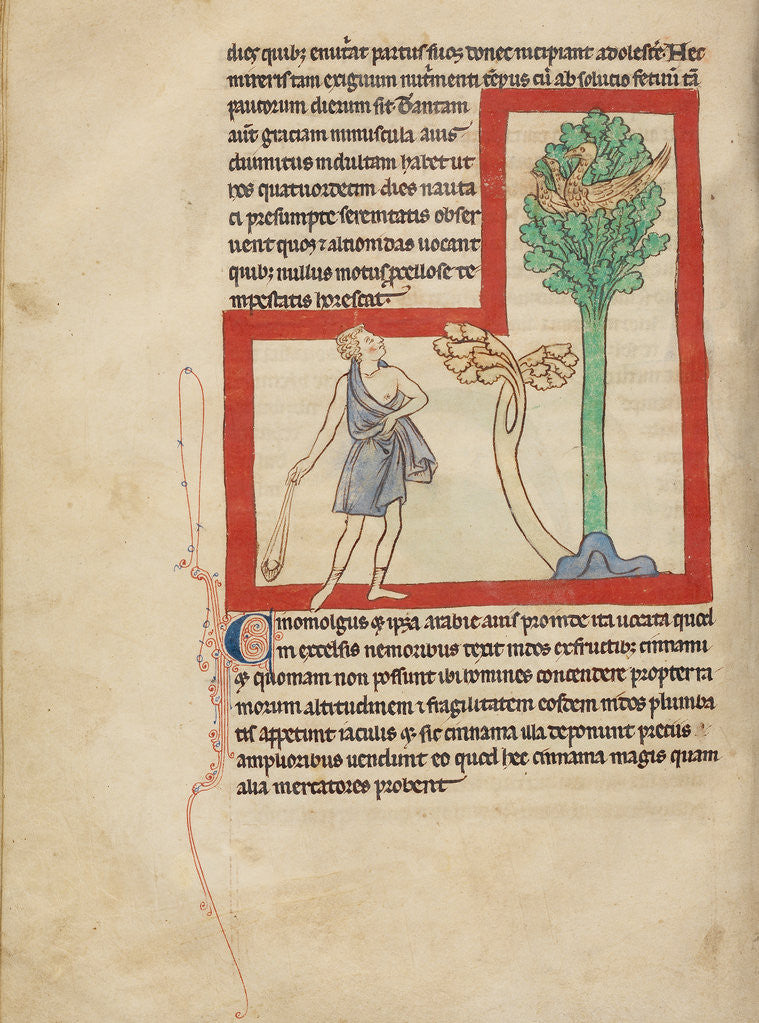 dies quib; enut̃at partus suos donec incipiant adolesc̃e. Nec
mireris tam exiguum nut̃menti t̃epus cũ absolucio fetuũ tã
paucorum dierum sit. Tantam
aut̃ graciam minuscula auis
diuinitus indultam habet ut
hos quatuordecim dies nauta
ci presumpte serenitatis obser
uent quos ⁊ altionidas uocant
quib; nullus motus ꝓcellose te
mpestatis horescat.
Cinomolgus q; ip̃a arabie auis proinde ita uocata quod
in excelsis nemoribus texit nidos ex fructib; cinnami
q; quoniam non possunt ibi homines concendere propter ra
morum altitudinem ⁊ fragilitatem eosdem nidos plumba
tis appetunt iaculis q; sic cinnama illa deponunt preciis
amplioribus uendunt eo quod hec cinnama magis quam
alia mercatores probent